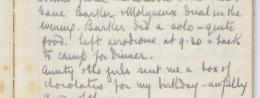 Gave Barker & Molyneux dual in the
evening. Barker did a solo - quite
good. Left aerodrome at 9.30 & back
to camp for dinner.
Aunty & the girls sent me a box of
chocolates for my birthday - awfully